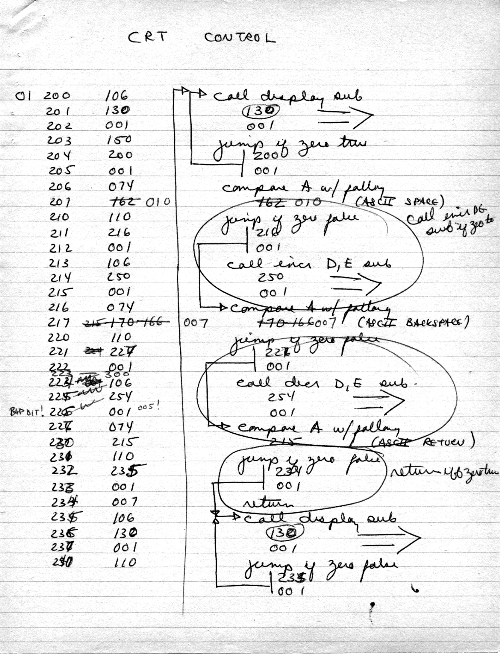 CRT CONTROL
01 200 106 call display sub
201 130 130
202 001 001
203 150 jump if zero true
204 200 200
205 001 001
206 074 compare A w/ following
207 162 010 162 010 (ASCII SPACE)
210 110 jump if zero false call incr DE
211 216 216 sub if zero
212 001 001
213 106 call incr D,E sub
214 250 250
215 001 001
216 074 compare A w/ following
217 215 170 166 007 170 166 007 (ASCII BACKSPACE)
220 110 jump if zero false
221 227 227
222 001 001
223 300
224 106 call decr D,E sub.
225 254 254
BAD BIT! 001 005! 001
227 074 compare A w/ following
230 215 215 (ASCII RETURN)
231 110 jump if zero false
232 235 234 return if zero true
233 001 001
234 007 return
235 106 call display sub
236 130 130
237 001 001
240 110 jump if zero false
235
001